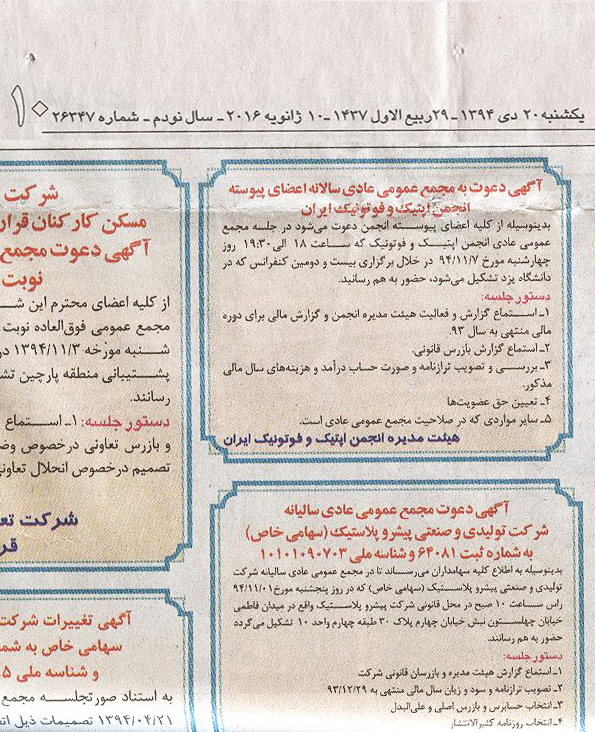 یکشنبه ۲۰ دی ۱۳۹۴ ـ ۲۹ ربیع الاول ۱۴۳۷ ـ ۱۰ ژانویه ۲۰۱۶ ـ سال نودم ـ شماره ۲۶۳۴۷
۱۰
آگهی دعوت به مجمع عمومی عادی سالانه اعضای پیوسته
انجمن اپتیک و فوتونیک ایران
بدینوسیله از کلیه اعضای پیوسته انجمن دعوت می‌شود در جلسه مجمع
عمومی عادی انجمن اپتیک و فوتونیک که ساعت ۱۸ الی ۱۹:۳۰ روز
چهارشنبه مورخ ۹۴/۱۱/۷ در خلال برگزاری بیست و دومین کنفرانس که در
دانشگاه یزد تشکیل می‌شود، حضور به هم رسانید.
دستور جلسه:
۱ـ استماع گزارش و فعالیت هیئت مدیره انجمن و گزارش مالی برای دوره
مالی منتهی به سال ۹۳.
۲ـ استماع گزارش بازرس قانونی.
۳ـ بررسی و تصویب ترازنامه و صورت حساب درآمد و هزینه‌های سال مالی
مذکور.
۴ـ تعیین حق عضویت‌ها
۵ـ سایر مواردی که در صلاحیت مجمع عمومی عادی است.
هیئت مدیره انجمن اپتیک و فوتونیک ایران
آگهی دعوت مجمع عمومی عادی سالیانه
شرکت تولیدی و صنعتی پیشرو پلاستیک (سهامی خاص)
به شماره ثبت ۶۴۰۸۱ و شناسه ملی ۱۰۱۰۱۰۹۰۷۰۳
بدینوسیله به اطلاع کلیه سهامداران می‌رساند تا در مجمع عمومی عادی سالیانه شرکت
تولیدی و صنعتی پیشرو پلاستیک (سهامی خاص) که در روز پنجشنبه مورخ ۹۴/۱۱/۰۱
راس ساعت ۱۰ صبح در محل قانونی شرکت پیشرو پلاستیک واقع در میدان فاطمی
خیابان چهلستون نبش خیابان چهارم پلاک ۳۰ طبقه چهارم واحد ۱۰ تشکیل می‌گردد
حضور به هم رسانند.
دستور جلسه:
۱ـ استماع گزارش هیئت مدیره و بازرسان قانونی شرکت
۲ـ تصویب ترازنامه و سود و زیان سال مالی منتهی به ۹۳/۱۲/۲۹
۳ـ انتخاب حسابرس و بازرس اصلی و علی‌البدل
۴ـ انتخاب روزنامه کثیرالانتشار
شرکت
مسکن کارکنان قرار
آگهی دعوت مجمع
نوبت
از کلیه اعضای محترم این شـ
مجمع عمومی فوق‌العاده نوبت
شنبه مورخه ۱۳۹۴/۱۱/۳ در
پشتیبانی منطقه پارچین تشـ
رسانند.
دستور جلسه: ۱ـ استماع
و بازرس تعاونی درخصوص وضـ
تصمیم درخصوص انحلال تعاونی
شرکت تعـ
قر
آگهی تغییرات شرکت
سهامی خاص به شمـ
و شناسه ملی ۸۵
به استناد صورتجلسه مجمع
۱۳۹۴/۰۴/۲۱ تصمیمات ذیل اتـ